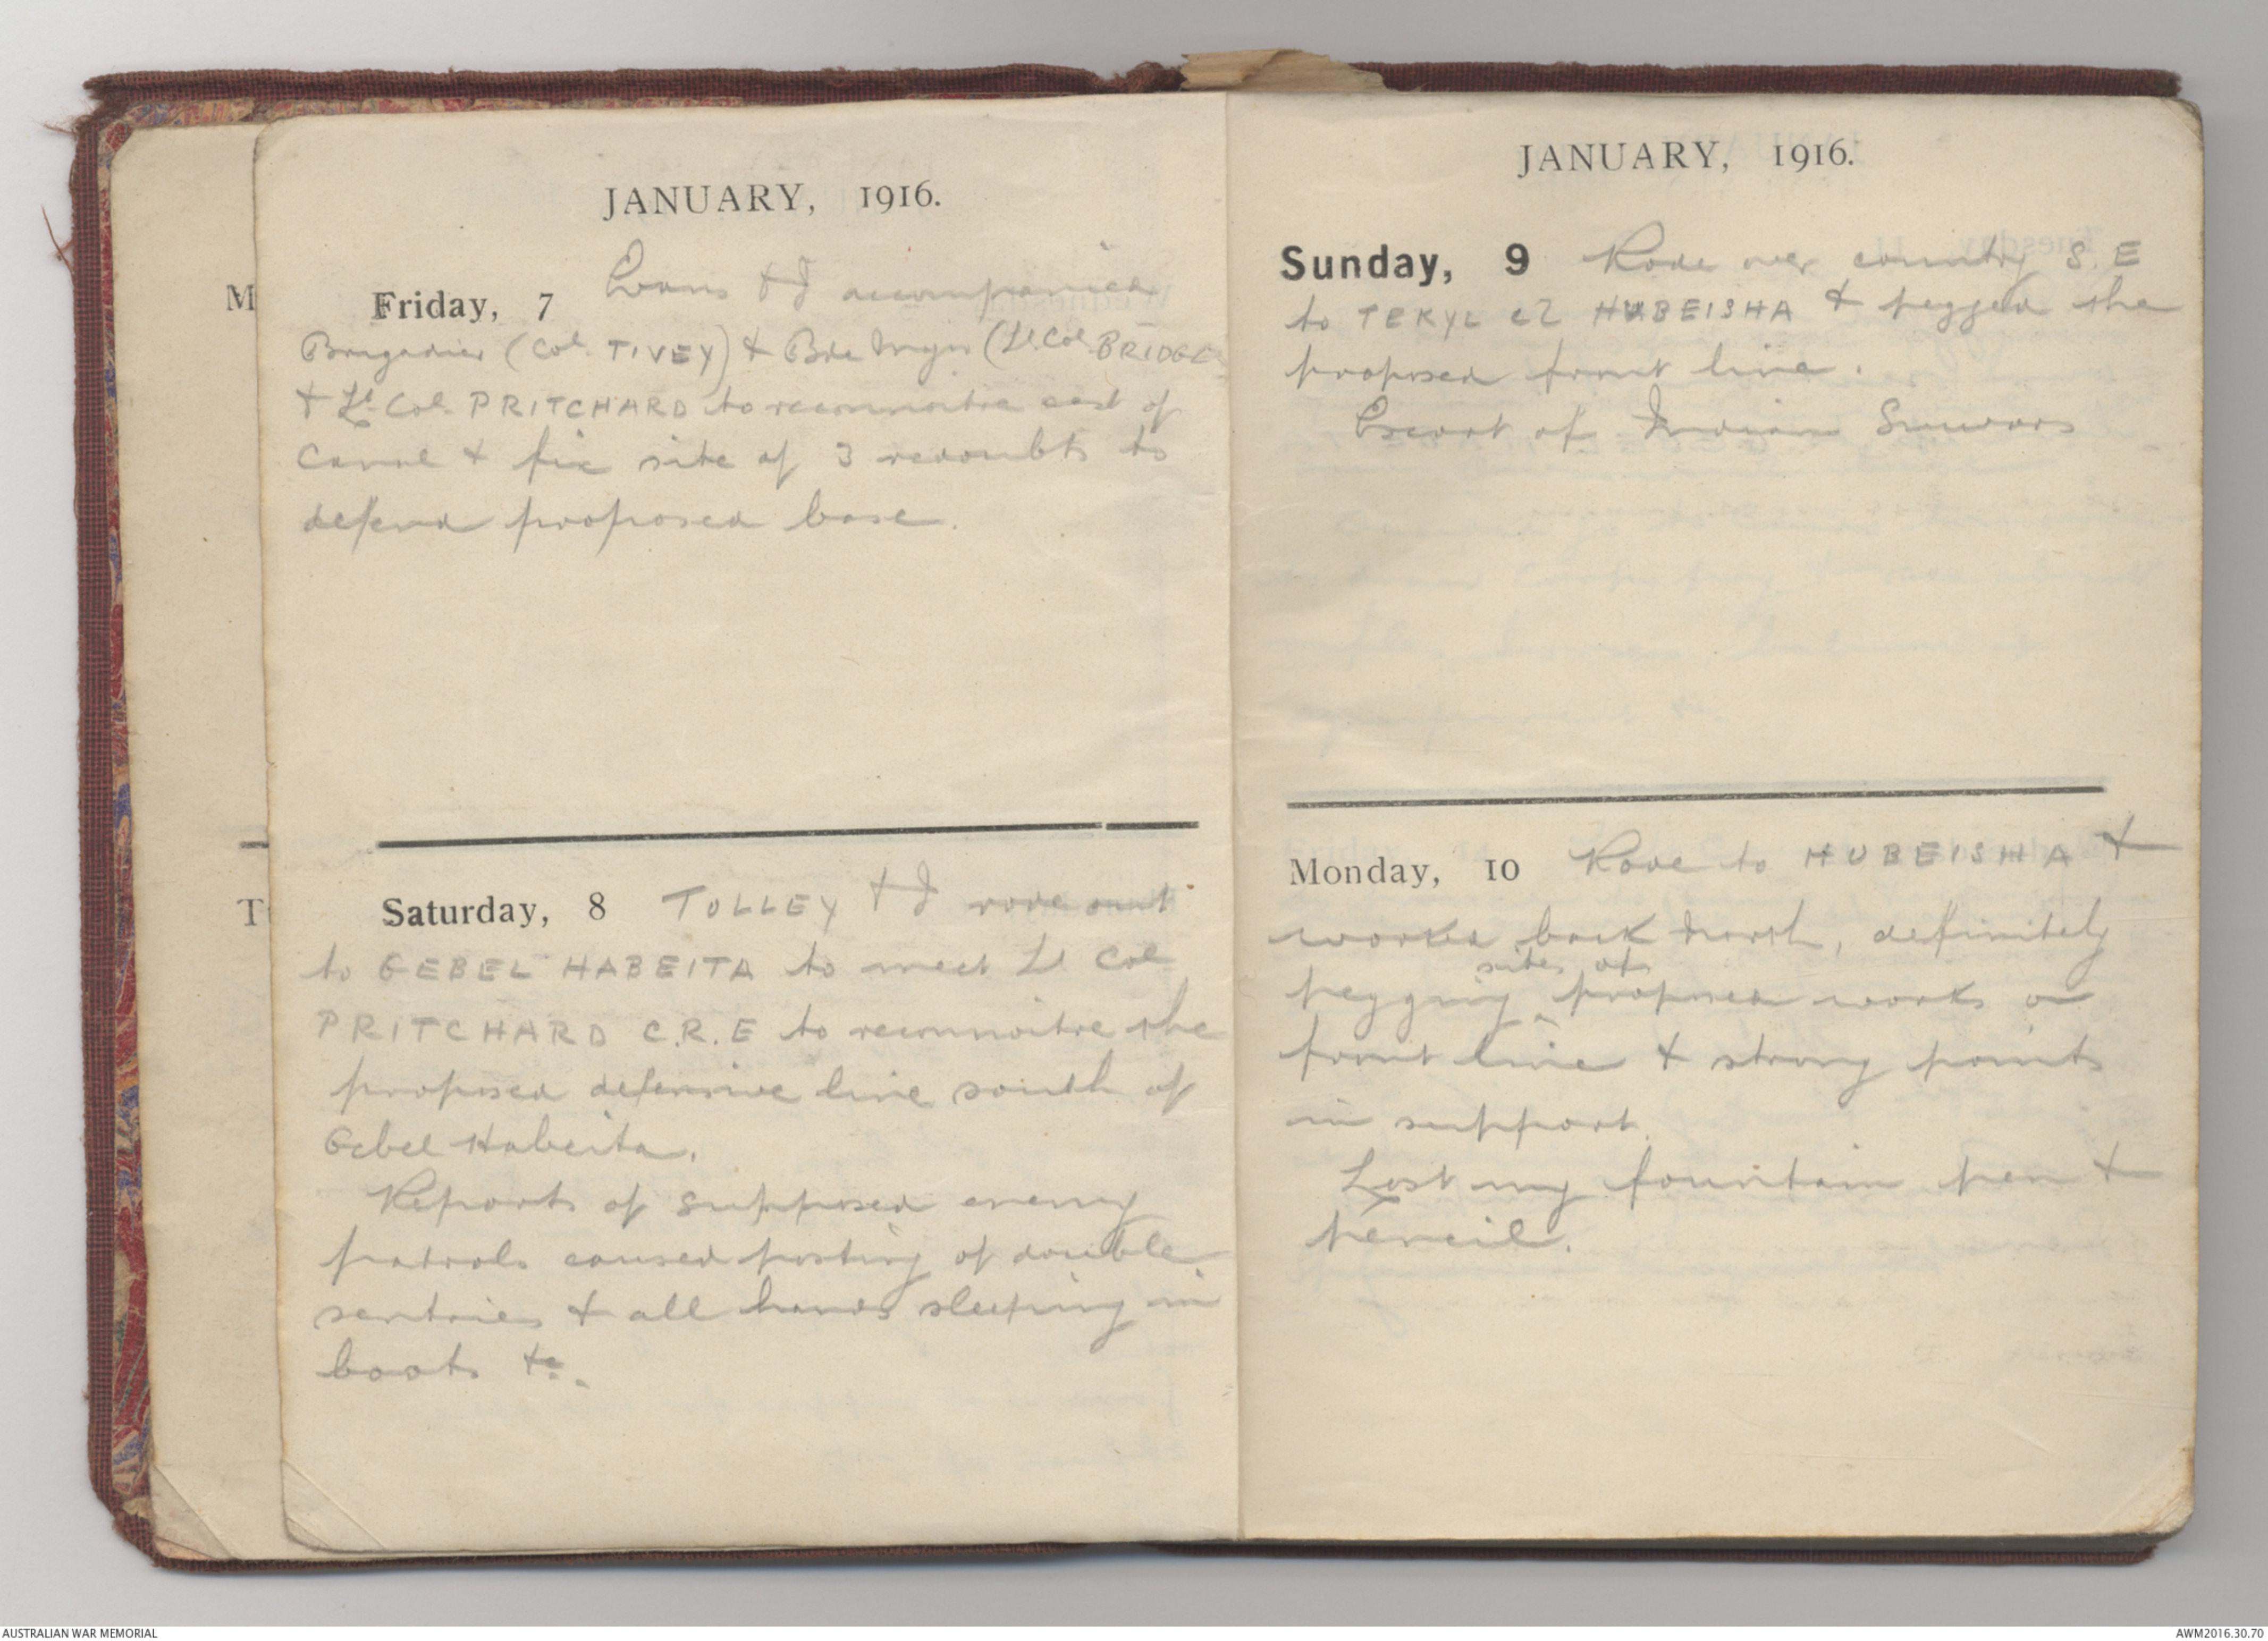 JANUARY, 1916.
Friday, 7 Evans & I accompanied
Brigadier (Col. TIVEY) & Bde Major (Lt. Col. BRIDGES
& Lt. Col. PRITCHARD to reconnoitre east of
Canal & fix site of 3 redoubts to
defend proposed base.
Saturday, 8 TOLLEY & I rode out
to GEBEL HABEITA to meet Lt Col
PRITCHARD C.R.E to reconnoitre the
proposed defensive line south of
Gebel Habeita.
Reports of supposed enemy
patrols caused posting of double
sentries & all hands sleeping in
boots &c.
M
T
JANUARY, 1916.
Sunday, 9 Rode over country S.E
to TEKYL el HUBEISHA & pegged the
proposed front line.
Escort of Indian Sowars
Monday, 10 Rode to HUBEISHA &
worked back North, definitely
sites of
pegging ^ proposed works on
front line & strong points
in support.
Lost my fountain pen &
pencil.
AUSTRALIAN WAR MEMORIAL
AWM2016.30.70